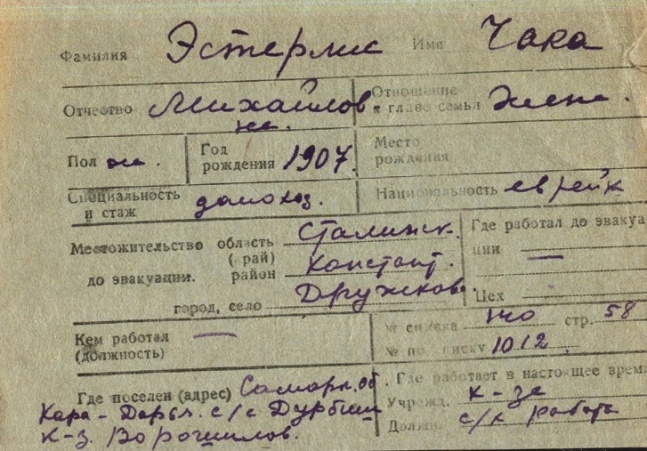 Фамилия Эстерлис Имя Чака
Отчество Михайлов Отношение
на. к главе семьи Жена.
Пол ж. Год рождения 1907. Место рождения
Специальность и стаж домохоз. Национальность еврейк
Местожительство область Сталинск. Где работал до эвакуа-
(край) ции —
до эвакуации. район Констант.
город, село Дружсков. Цех
Кем работал — № списка 140 стр. 58
(должность) № по списку 1012
Где поселен (адрес) Самарк. об. Где работает в настоящее время
Кара-Дарьл. с/с Дурбин Учрежд. к-зе
к-з. Ворошилов. Должн. с/х работа